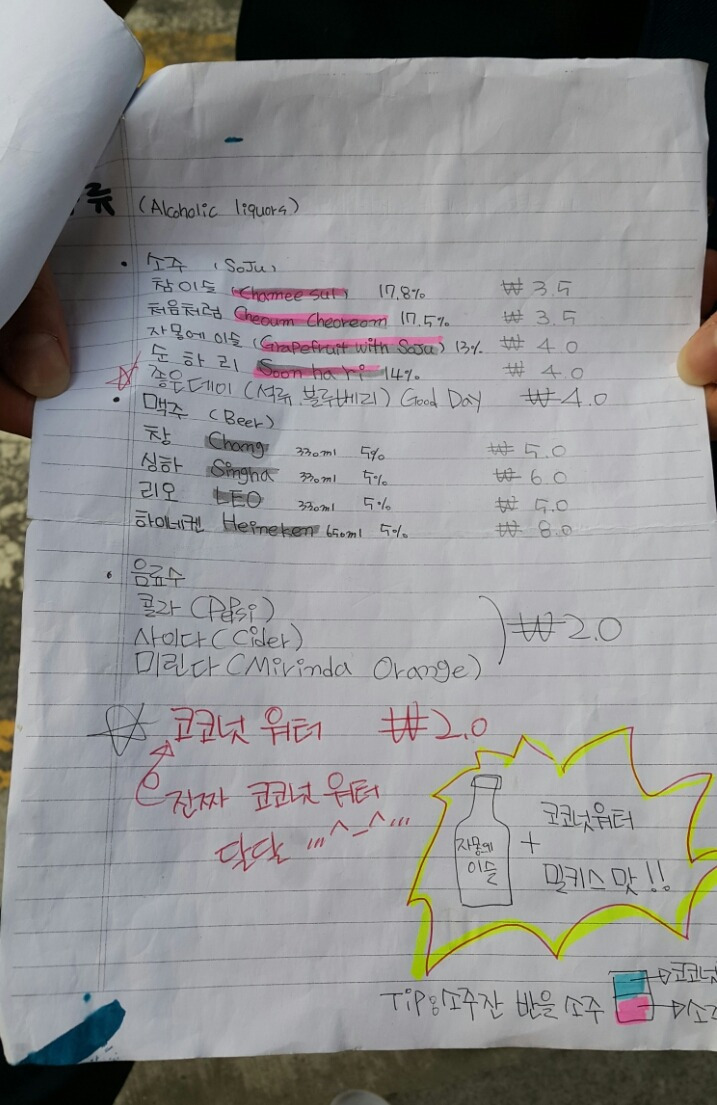 류 (Alcoholic liquors)
• 소주 (SoJu)
참이슬 (Chamee sul) 17.8% ₩ 3.5
처음처럼 Cheoum Cheoreom 17.5% ₩ 3.5
자몽에 이슬 (Grapefruit with Soju) 13% ₩ 4.0
순하리 Soon ha ri 14% ₩ 4.0
☆ 좋은데이 (석류, 블루베리) Good Day ₩ 4.0
• 맥주 (Beer)
창 Chang 330ml 5% ₩ 5.0
싱하 Singha 330ml 5% ₩ 6.0
리오 LEO 330ml 5% ₩ 5.0
하이네켄 Heineken 650ml 5% ₩ 8.0
• 음료수
콜라 (Pepsi)
사이다 (Cider) ₩ 2.0
미린다 (Mirinda Orange)
☆ 코코넛 워터 ₩ 2.0
진짜 코코넛 워터
달달 ,,,^_^,,,
자몽에
이슬
+
코코넛워터
밀키스 맛!!
TiP: 소주잔 반을 소주
코코넛